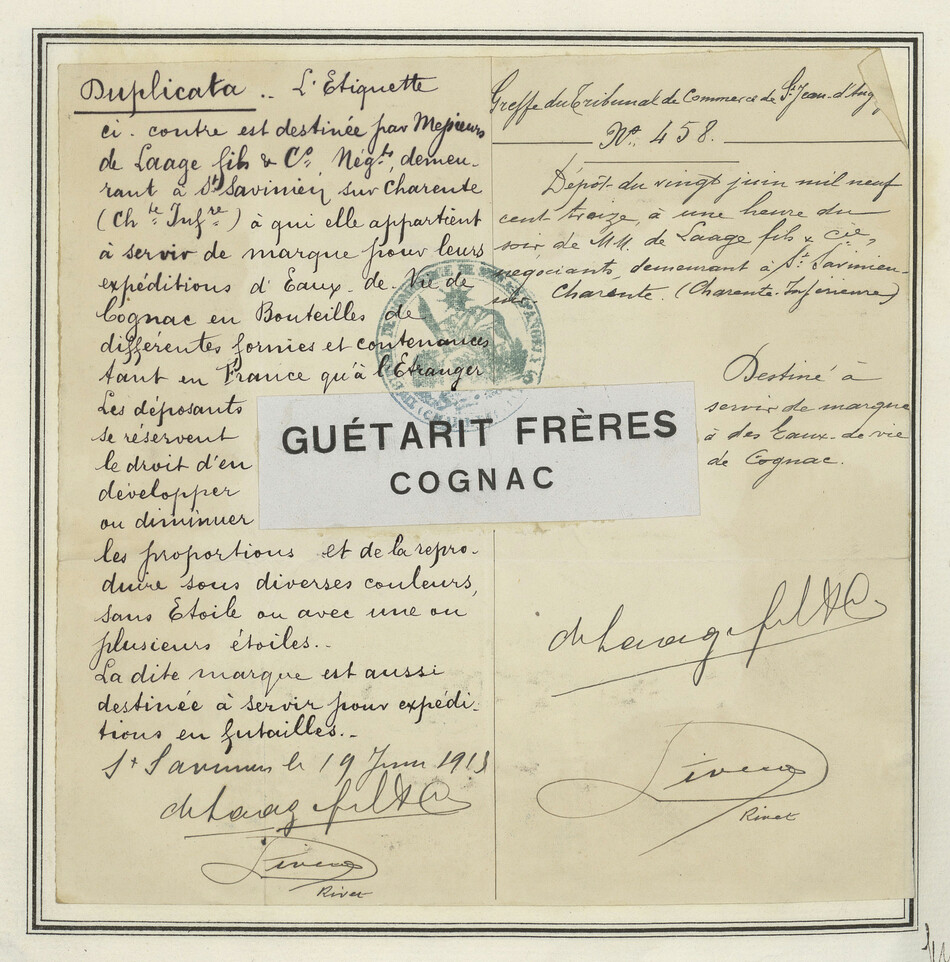 Duplicata .. L'Etiquette
ci-contre est destinée par Messieurs
de Laage fils & Cº Négts demeu-
rant à St Savinien sur Charente
(Chte Infre) à qui elle appartient
à servir de marque pour leurs
expéditions d'Eaux-de-Vie de
Cognac en Bouteilles de
différentes formes et contenances
tant en France qu'à l'Etranger
Les déposants
se réservent
le droit d'en
développer
ou diminuer
les proportions et de la repro-
duire sous diverses couleurs,
sans Etoile ou avec une ou
plusieurs étoiles..
La dite marque est aussi
destinée à servir pour expédi-
tions en futailles..
St Savinien le 19 Juin 1913
de Laage fils & Co
Rivet
GUÉTARIT FRÈRES
COGNAC
Greffe du Tribunal de Commerce de St Jean-d'Ang
Nº 458.
Dépôt du vingt juin mil neuf
cent treize, à une heure du
soir de MM. de Laage fils & Cie,
négociants, demeurant à St Savinien-
sur-
Charente. (Charente-Inférieure)
Destiné à
servir de marque
à des Eaux-de-vie
de Cognac.
de Laage fils & Co
Rivet